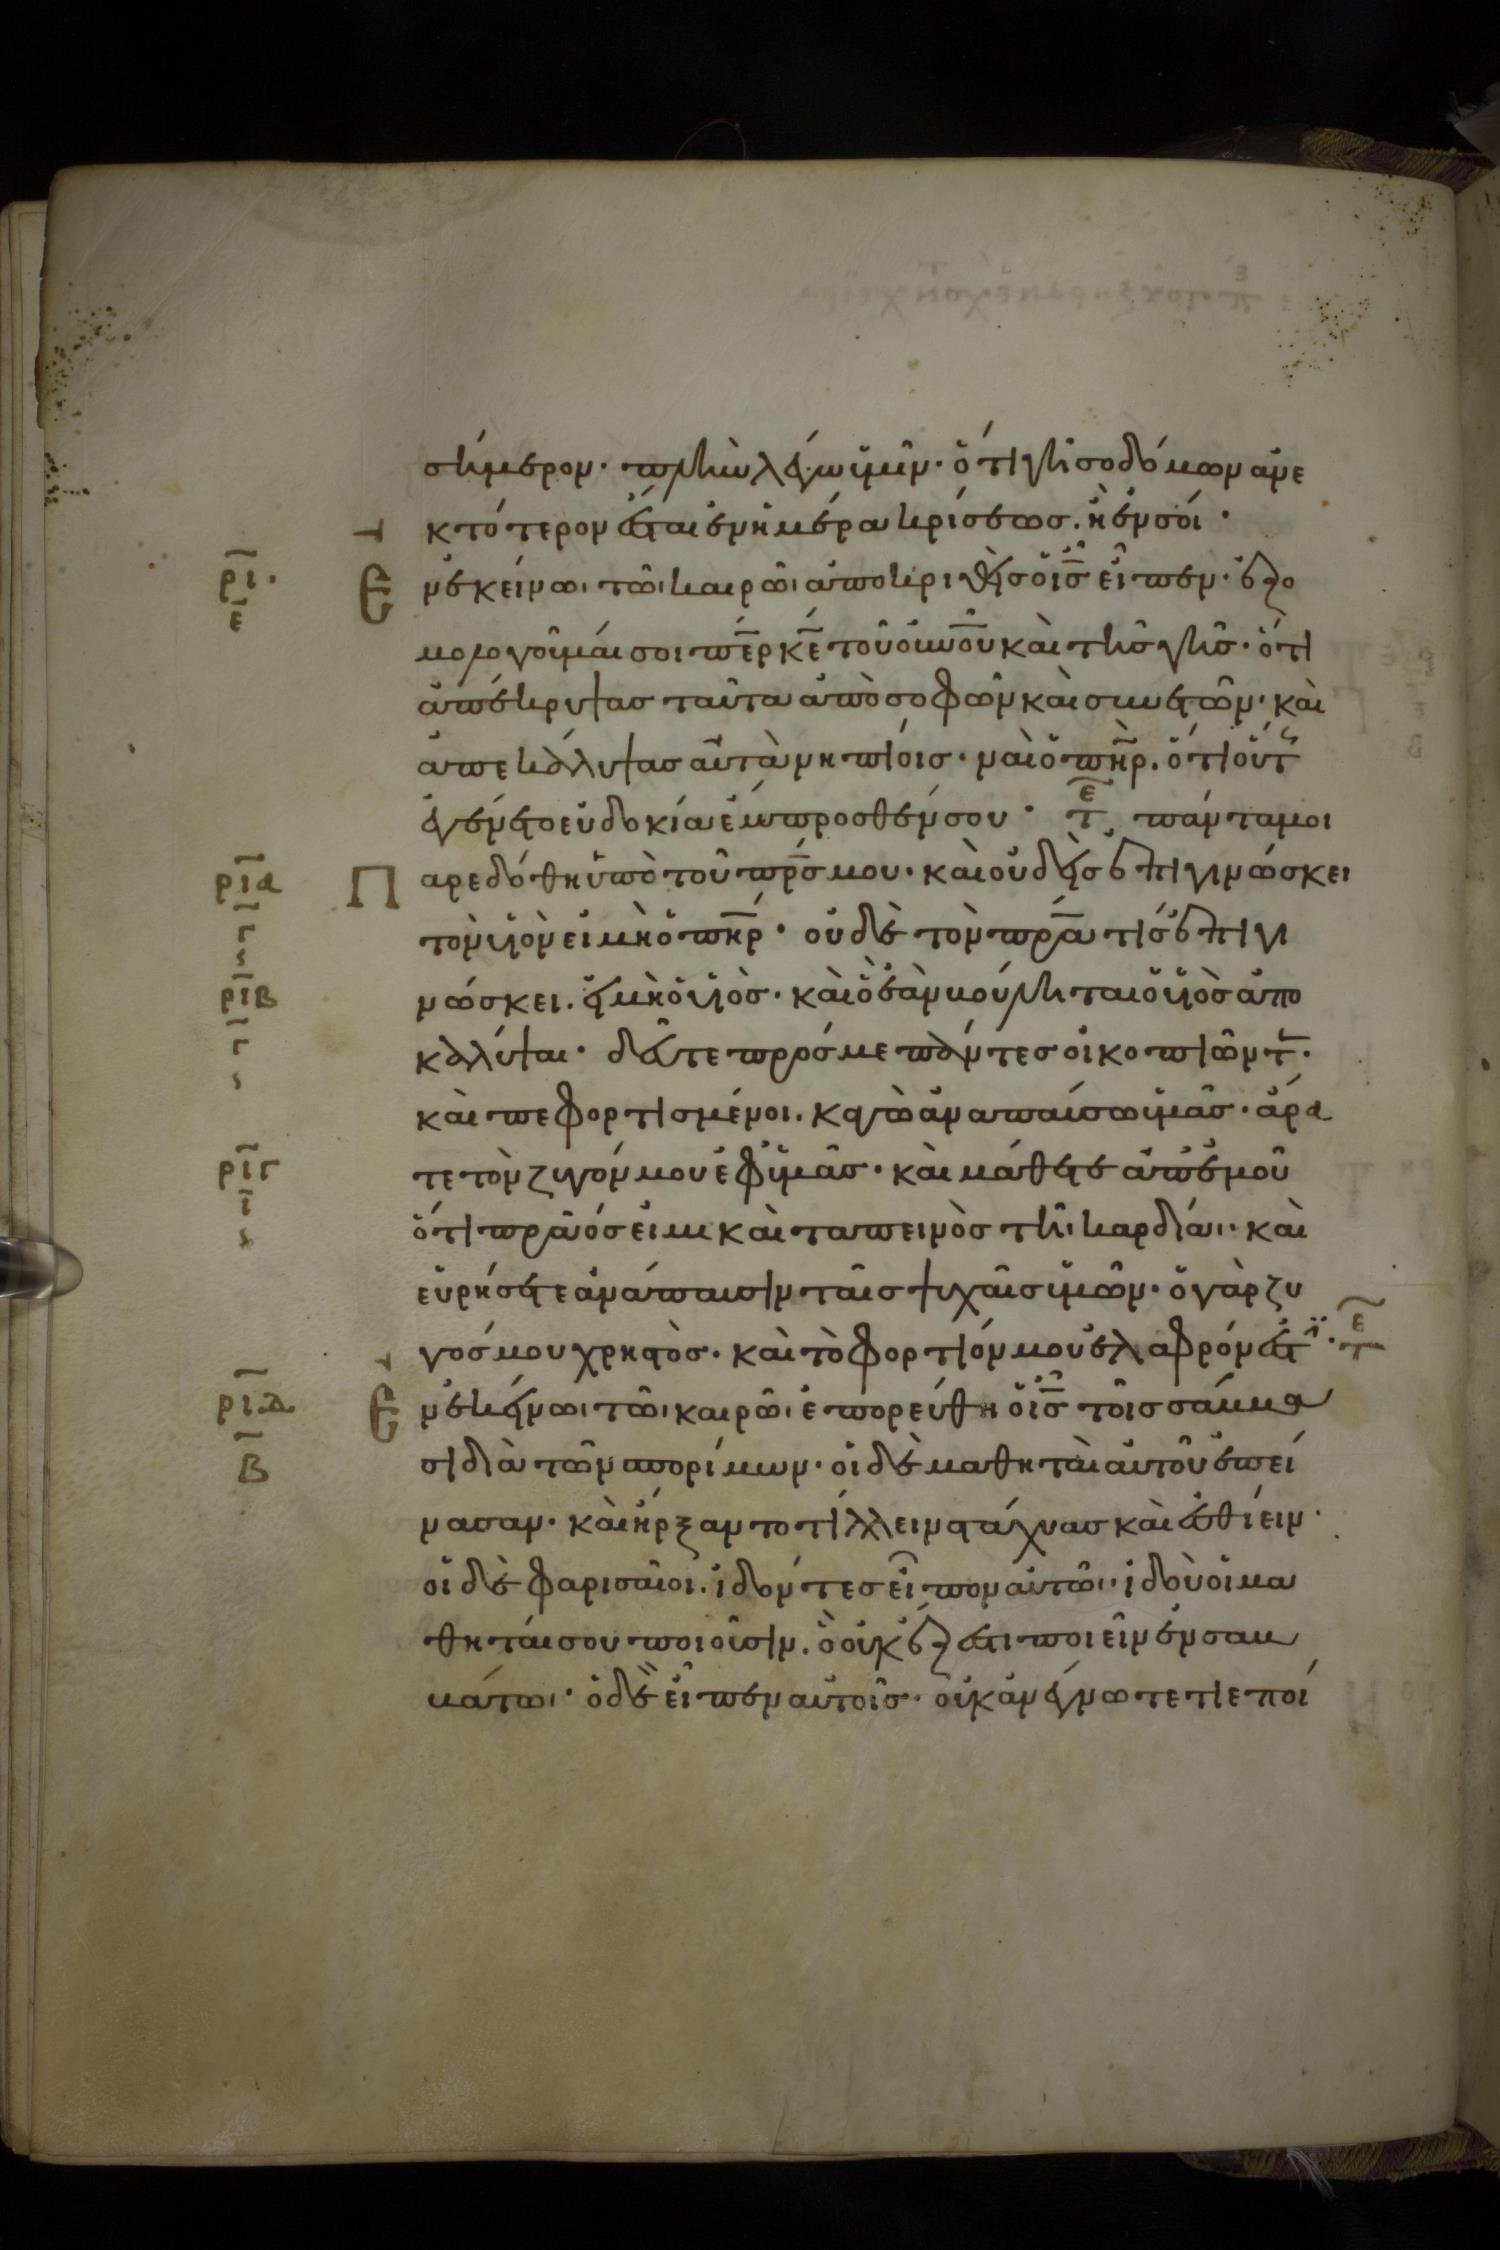 σήμερον· πλὴν λέγω ὑμῖν· ὅτι γῆ σοδόμων ἀνε
κτότερον ἔσται ἐν ἡμέρα κρίσεως. ἢ ἐν σοί·
ρι· ε Ἐν ἐκείνωι τῶι καιρῶι ἀποκριθεὶς ὁ ις εἶπεν· ἐξο
μολογοῦμαί σοι περ κε τοῦ οὐνου καὶ τῆς γῆς· ὅτι
ἀπέκρυψας ταῦτα ἀπὸ σοφῶν καὶ συνετῶν· καὶ
ἀπεκάλυψας αὐτὰ νηπίοις· ναὶ ὁ πηρ. ὅτι οὕτ
ἐγένετο εὐδοκία ἔμπροσθέν σου· τε πάντα μοι
ρια Παρεδόθη ὑπὸ τοῦ πρς μου· καὶ οὐδεὶς ἐπιγινώσκει
γ τὸν υἱὸν εἰ μὴ ὁ πηρ· οὐδὲ τὸν πρα τίς ἐπιγι
ριβ νώσκει. εἰ μὴ ὁ υἱὸς· καὶ ὃ ἐὰν βούληται ὁ υἱὸς ἀπο
γ καλύψαι· δεῦτε πρός με πάντες οἱ κοπιῶντ·
καὶ πεφορτισμένοι. κἀγὼ ἀναπαύσω ὑμᾶς· ἄρα
ριγ ι τε τὸν ζυγόν μου ἐφ' ὑμᾶς· καὶ μάθετε ἀπ' ἐμοῦ
ὅτι πρᾶός εἰμι καὶ ταπεινὸς τῆι καρδίαι· καὶ
εὑρήσετε ἀνάπαυσιν ταῖς ψυχαῖς ὑμῶν· ὁ γὰρ ζυ
γός μου χρηστὸς· καὶ τὸ φορτίον μου ἐλαφρόν ἐστ· τε
ριδ Ἐν ἐκείνωι τῶι καιρῶι ἐπορεύθη ὁ ις τοῖς σάββα
β σι διὰ τῶν σπορίμων· οἱ δὲ μαθηταὶ αὐτοῦ ἐπεί
νασαν· καὶ ἤρξαντο τίλλειν στάχυας καὶ ἐσθίειν·
οἱ δὲ φαρισαῖοι. ἰδόντες εἶπον αὐτῶι· ἰδοὺ οἱ μα
θηταί σου ποιοῦσιν. ὃ οὐκ ἔξεστι ποιεῖν ἐν σαβ
βάτωι· ὁ δὲ εἶπεν αὐτοῖς· οὐκ ἀνέγνωτε τί ἐποί